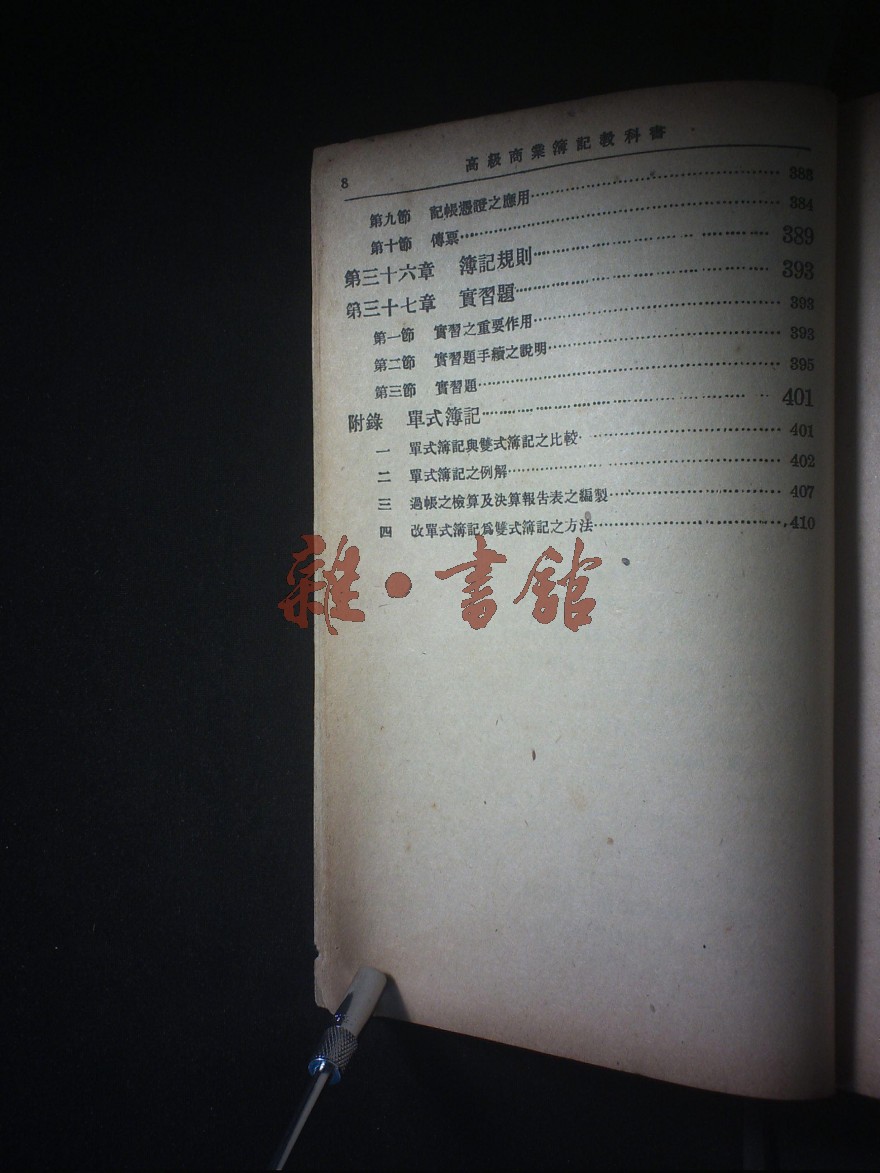 8 高級商業簿記教科書
第九節 記帳憑證之應用 383
第十節 傳票 384
第三十六章 簿記規則 389
第三十七章 實習題 393
第一節 實習之重要作用 393
第二節 實習題手續之說明 393
第三節 實習題 395
附錄 單式簿記 401
一 單式簿記與雙式簿記之比較 401
二 單式簿記之例解 402
三 過帳之檢算及決算報告表之編製 407
四 改單式簿記爲雙式簿記之方法 410
雜・書館